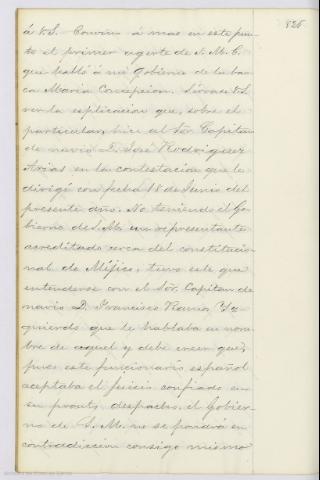 826
á V.S. Convino á mas en este pun-
to el primer agente de S. M. C.
que habló á mi Gobierno de la bar-
ca Maria Concepcion. Sírvase V.S.
ver la esplicacion que, sobre el
particular, hice al Sor. Capitan
de navio D. José Rodriguez
Arias en la contestacion que le
dirigí con fecha 18 de Junio del
presente año. No teniendo el Go-
bierno de S. M. un representante
acreditado cerca del constitucio-
nal de Méjico, tuvo este que
entenderse con el Sor. Capitan de
navio D. Francisco Ramos Yz-
quierdo que le hablaba en nom-
bre de aquel y debe creer que,
pues este funcionario español
aceptaba el juicio confiado en
su pronto despacho, el Gobier-
no de S. M. no se pondrá en
contradiccion consigo mismo